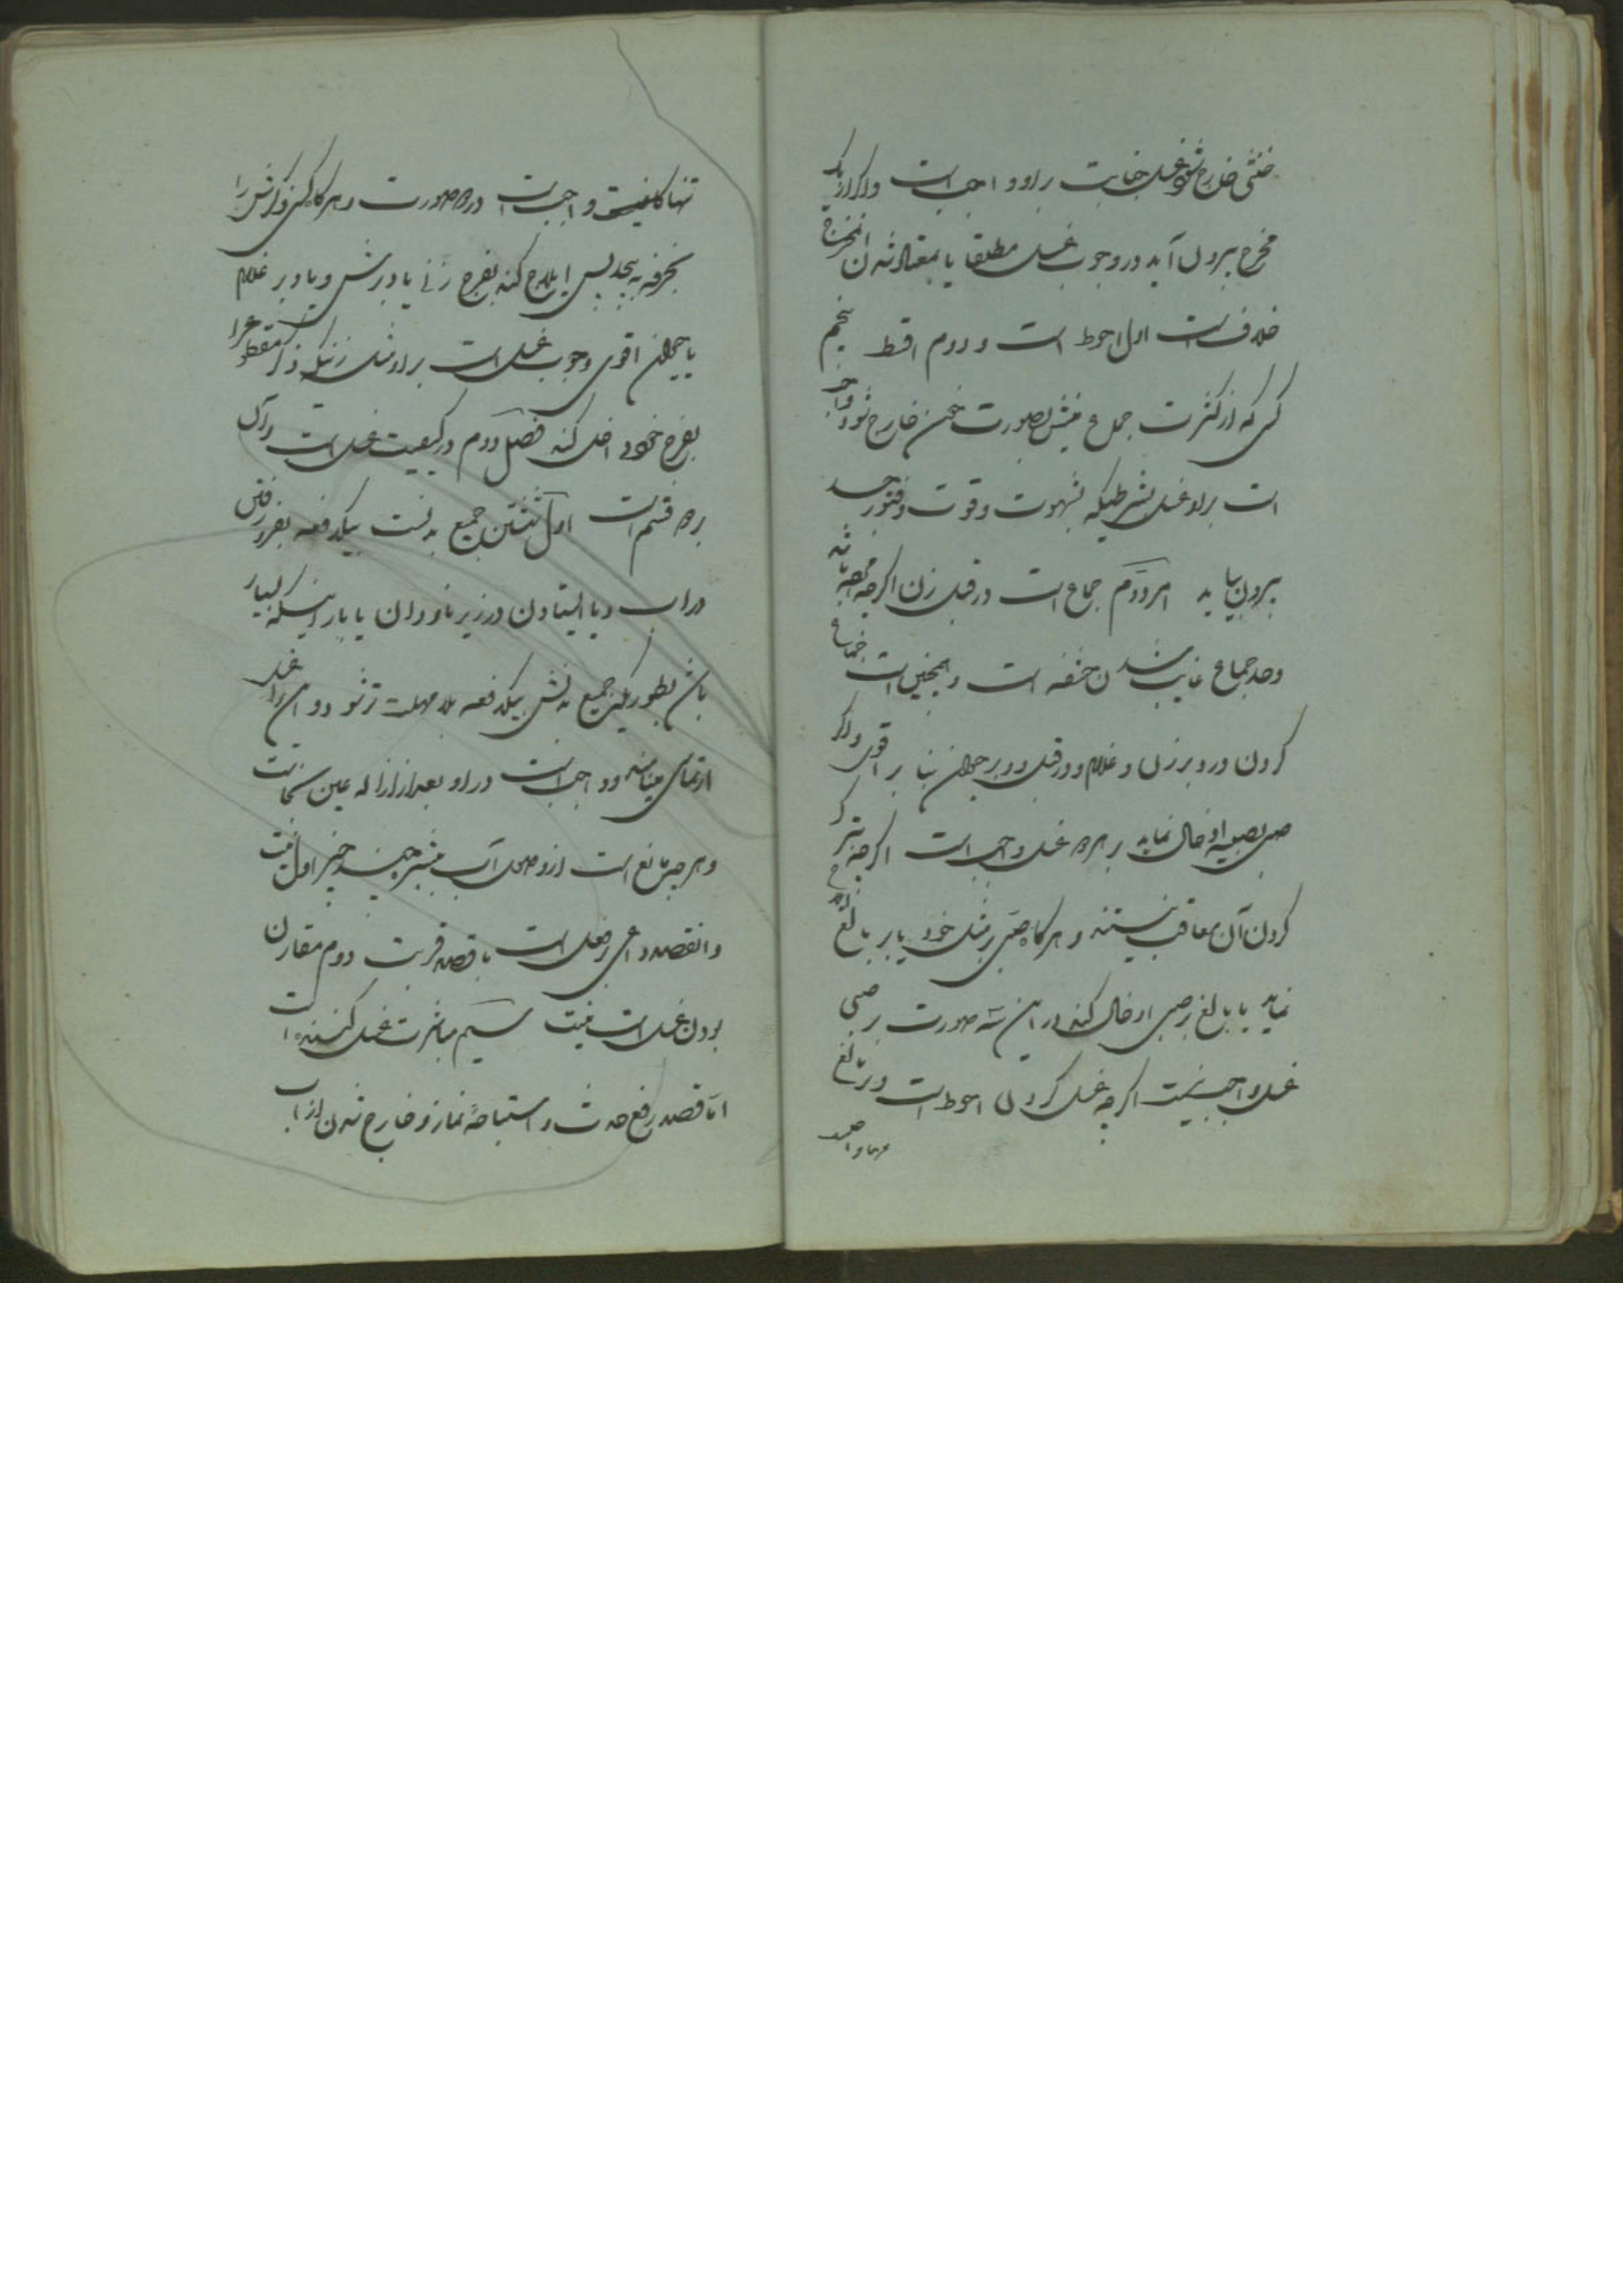 خنثی خارج شود غسل جنابت بر او واجبست و اگر از یک
مخرج بیرون آید در وجوب غسل مطلقا یا بمعتاد شدن آن مخرج
خلافست اول احوط است و دوم اقسط پنجم
کسی که از کثرت جماع منیش بصورت خون خارج شود واجب
است بر او غسل بشرطیکه بشهوت و قوت و فتور جسد
بیرون بیاید امر دوم جماع است در قبل زن اگرچه میته باشد
وحد جماع غایب شدن حشفه است و همچنین است جماع
کردن در دبر زن و غلام و در قبل و دبر حیوان بنا بر اقوی و اگر
صبی بصبیه ادخال نماید بر هر دو غسل واجب است اگرچه بترک
کردن آن معاقب نیستند و هرگاه صبی بر مثل خود یا بر بالغ
نماید یا بالغ بر صبی ادخال کند در این سه صورت بر صبی
غسل واجب نیست اگرچه غسل کردن احوط است و بر بالغ
تنها واجبست در دو صورت و هرگاه کسی ذکرش را
بخرقه به پیچد پس ایلاج کند بفرج زنی یا دبرش و یا دبر غلام
یا حیوان اقوی وجوب غسل است بر او مثل زنیکه ذکر مقطوع را
بفرج خود داخل کند فصل دوم در کیفیت غسل است و آن
بر دو قسم است اول شستن جمیع بدنست بیکدفعه بفرو رفتن
در آب و یا ایستادن در زیر ناودان یا باران بسیار
بطوریکه جمیع بدنش بیکدفعه بلا مهلت تر شود و این را غسل
ارتماسی مینامند و واجبست در او بعد از ازاله عین نجاست
و هر چیز مانع است از وصول آب ببشره چند چیز اول نیت
و آن قصد داعی بر فعل است با قصد قربت دوم مقارن
بودن غسل است بنیت سیم مباشرت غسل کننده است
اما قصد رفع حدث و استباحهٔ نماز و خارج شدن از آب